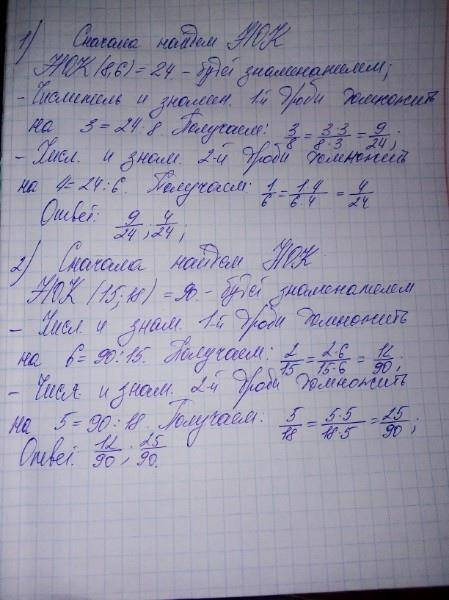 1) Сначала найдем НОК
НОК (8,6) = 24 - будет знаменателем;
- Числитель и знамен. 1-й дроби домножить
на 3 = 24:8 Получаем: 3/8 = 3·3/8·3 = 9/24;
- Числ. и знам. 2-й дроби домножить
на 4 = 24:6. Получаем: 1/6 = 1·4/6·4 = 4/24
Ответ: 9/24; 4/24;
2) Сначала найдем НОК
НОК (15; 18) = 90 - будет знаменателем
- Числ. и знам. 1-й дроби домножить
на 6 = 90:15. Получаем: 2/15 = 2·6/15·6 = 12/90;
- Числ. и знам. 2-й дроби домножить
на 5 = 90:18. Получаем: 5/18 = 5·5/18·5 = 25/90;
Ответ: 12/90; 25/90.